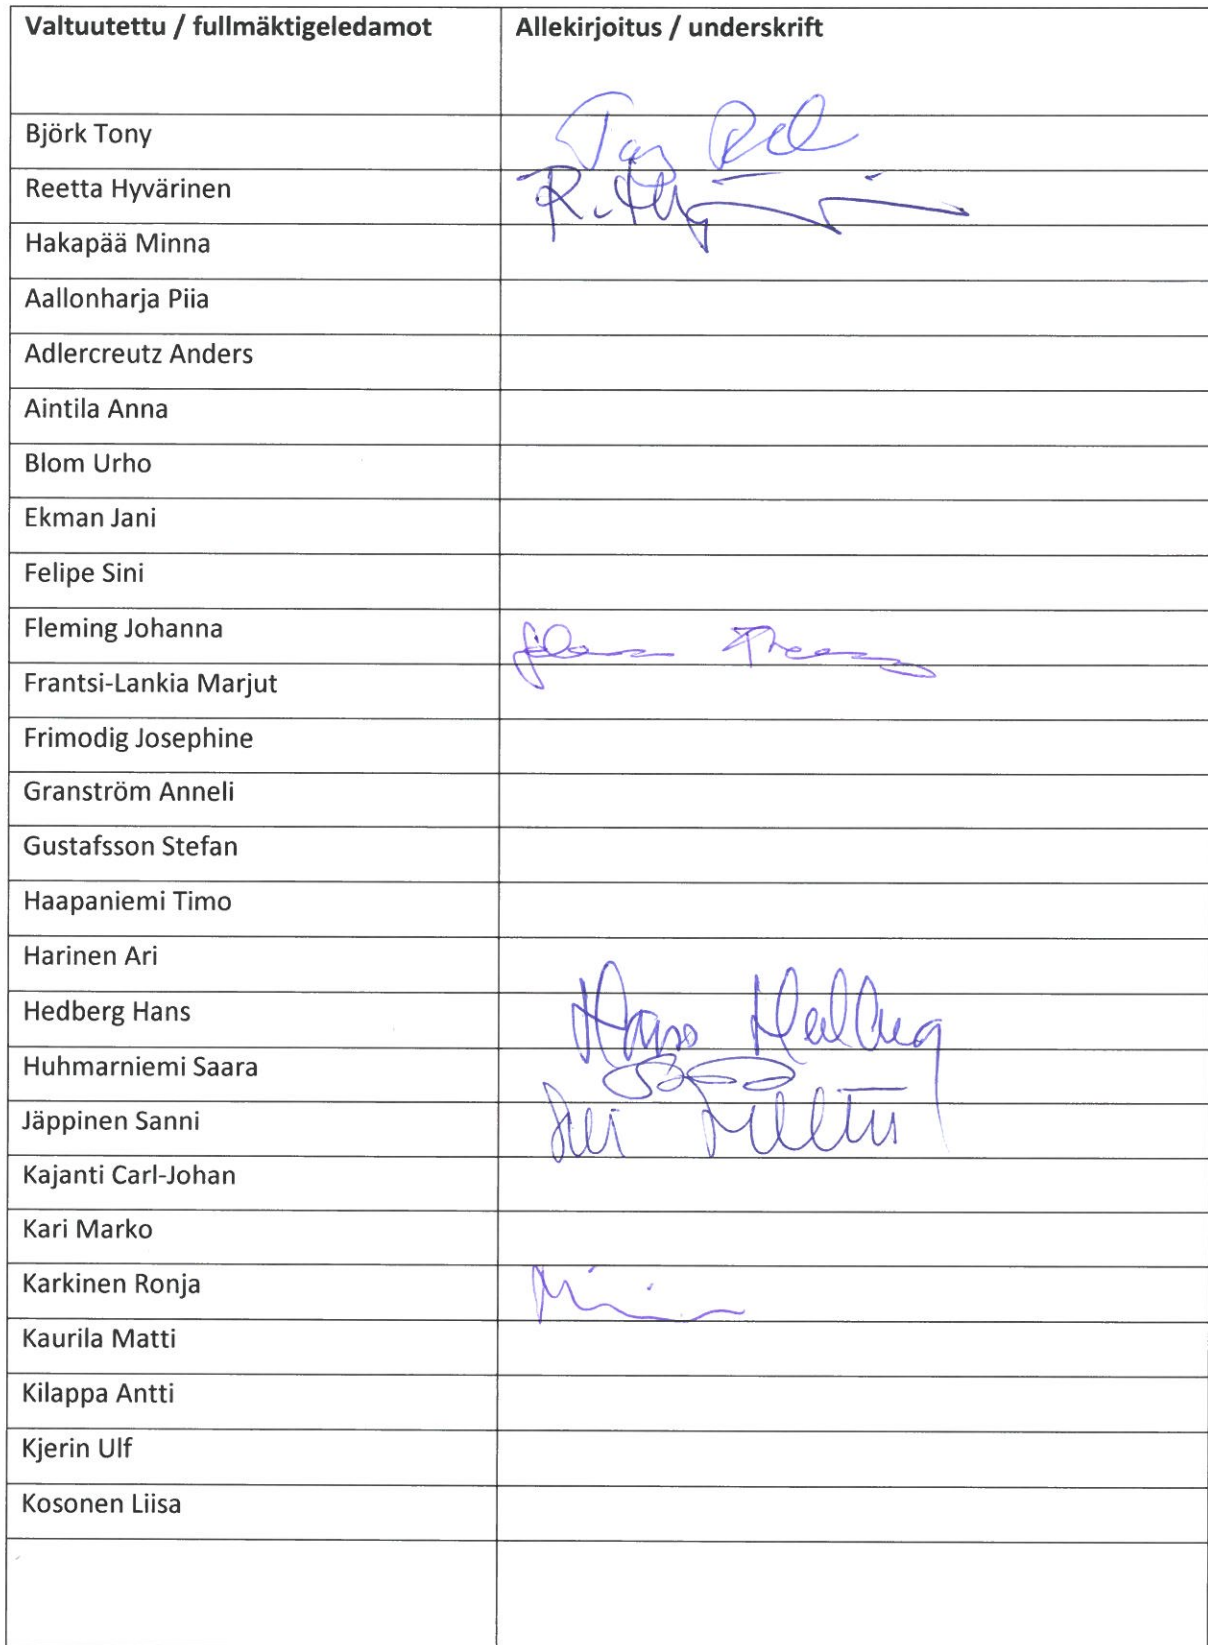 Valtuutettu / fullmäktigeledamot Allekirjoitus / underskrift
Björk Tony
Reetta Hyvärinen
Hakapää Minna
Aallonharja Piia
Adlercreutz Anders
Aintila Anna
Blom Urho
Ekman Jani
Felipe Sini
Fleming Johanna
Frantsi-Lankia Marjut
Frimodig Josephine
Granström Anneli
Gustafsson Stefan
Haapaniemi Timo
Harinen Ari
Hedberg Hans Hans Hedberg
Huhmarniemi Saara
Jäppinen Sanni
Kajanti Carl-Johan
Kari Marko
Karkinen Ronja
Kaurila Matti
Kilappa Antti
Kjerin Ulf
Kosonen Liisa